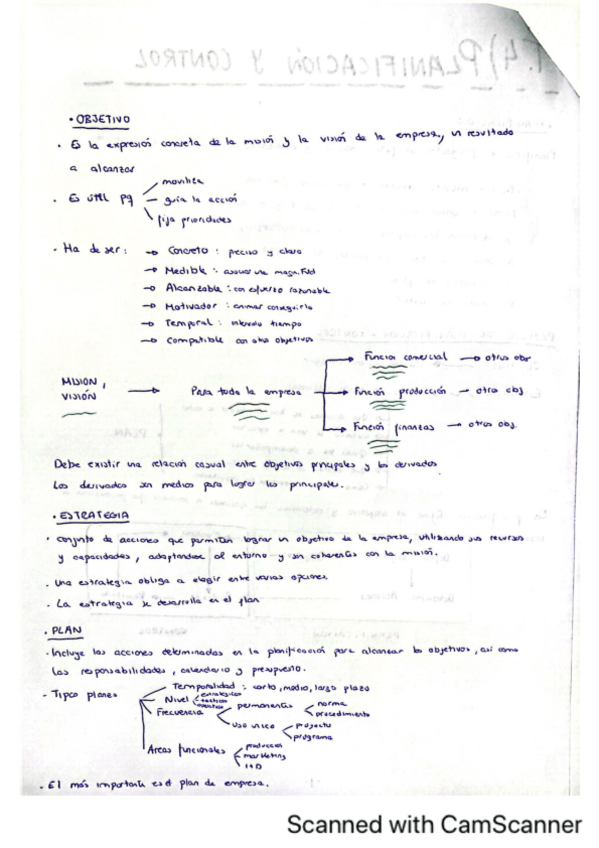 T.4) PLANIFICACIÓN Y CONTROL
• OBJETIVO
• Es la expresión concreta de la misión y la visión de la empresa, un resultado
a alcanzar
• Es útil pq
moviliza
guía la acción
fija prioridades
• Ha de ser:
→ Concreto: preciso y claro
→ Medible: asociar una magnitud
→ Alcanzable: con esfuerzo razonable
→ Motivador: animar conseguirlo
→ Temporal: intervalo tiempo
→ Compatible con otros objetivos
MISIÓN, VISIÓN → Para toda la empresa
→ Función comercial → otros obj
→ Función producción → otro obj
→ Función finanzas → otros obj.
Debe existir una relación casual entre objetivos principales y los derivados
Los derivados son medios para lograr los principales.
• ESTRATEGIA
• Conjunto de acciones que permitan lograr un objetivo de la empresa, utilizando sus recursos
y capacidades, adaptandose al entorno y son coherentes con la misión.
• Una estrategia obliga a elegir entre varias opciones.
• La estrategia se desarrolla en el plan
• PLAN
• Incluye las acciones determinadas en la planificación para alcanzar los objetivos, así como
las responsabilidades, calendario y presupuesto.
- Tipos planes
Temporalidad: corto, medio, largo plazo
Nivel
estratégicos
tácticos
operativos
Frecuencia
permanentes
norma
procedimiento
uso único
proyecto
programa
Áreas funcionales
producción
marketing
I+D
• El más importante es el plan de empresa.
Scanned with CamScanner